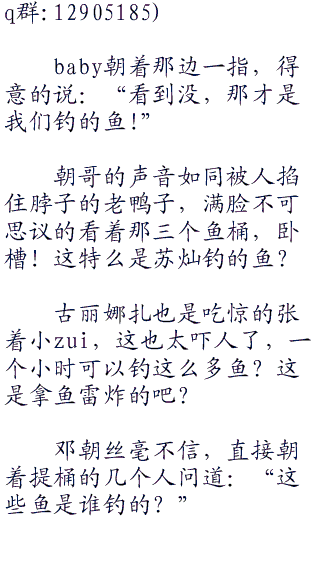 q群:12905185)
baby朝着那边一指，得
意的说：“看到没，那才是
我们钓的鱼！”
朝哥的声音如同被人掐
住脖子的老鸭子，满脸不可
思议的看着那三个鱼桶，卧
槽！这特么是苏灿钓的鱼？
古丽娜扎也是吃惊的张
着小zui，这也太吓人了，一
个小时可以钓这么多鱼？这
是拿鱼雷炸的吧？
邓朝丝毫不信，直接朝
着提桶的几个人问道：“这
些鱼是谁钓的？”